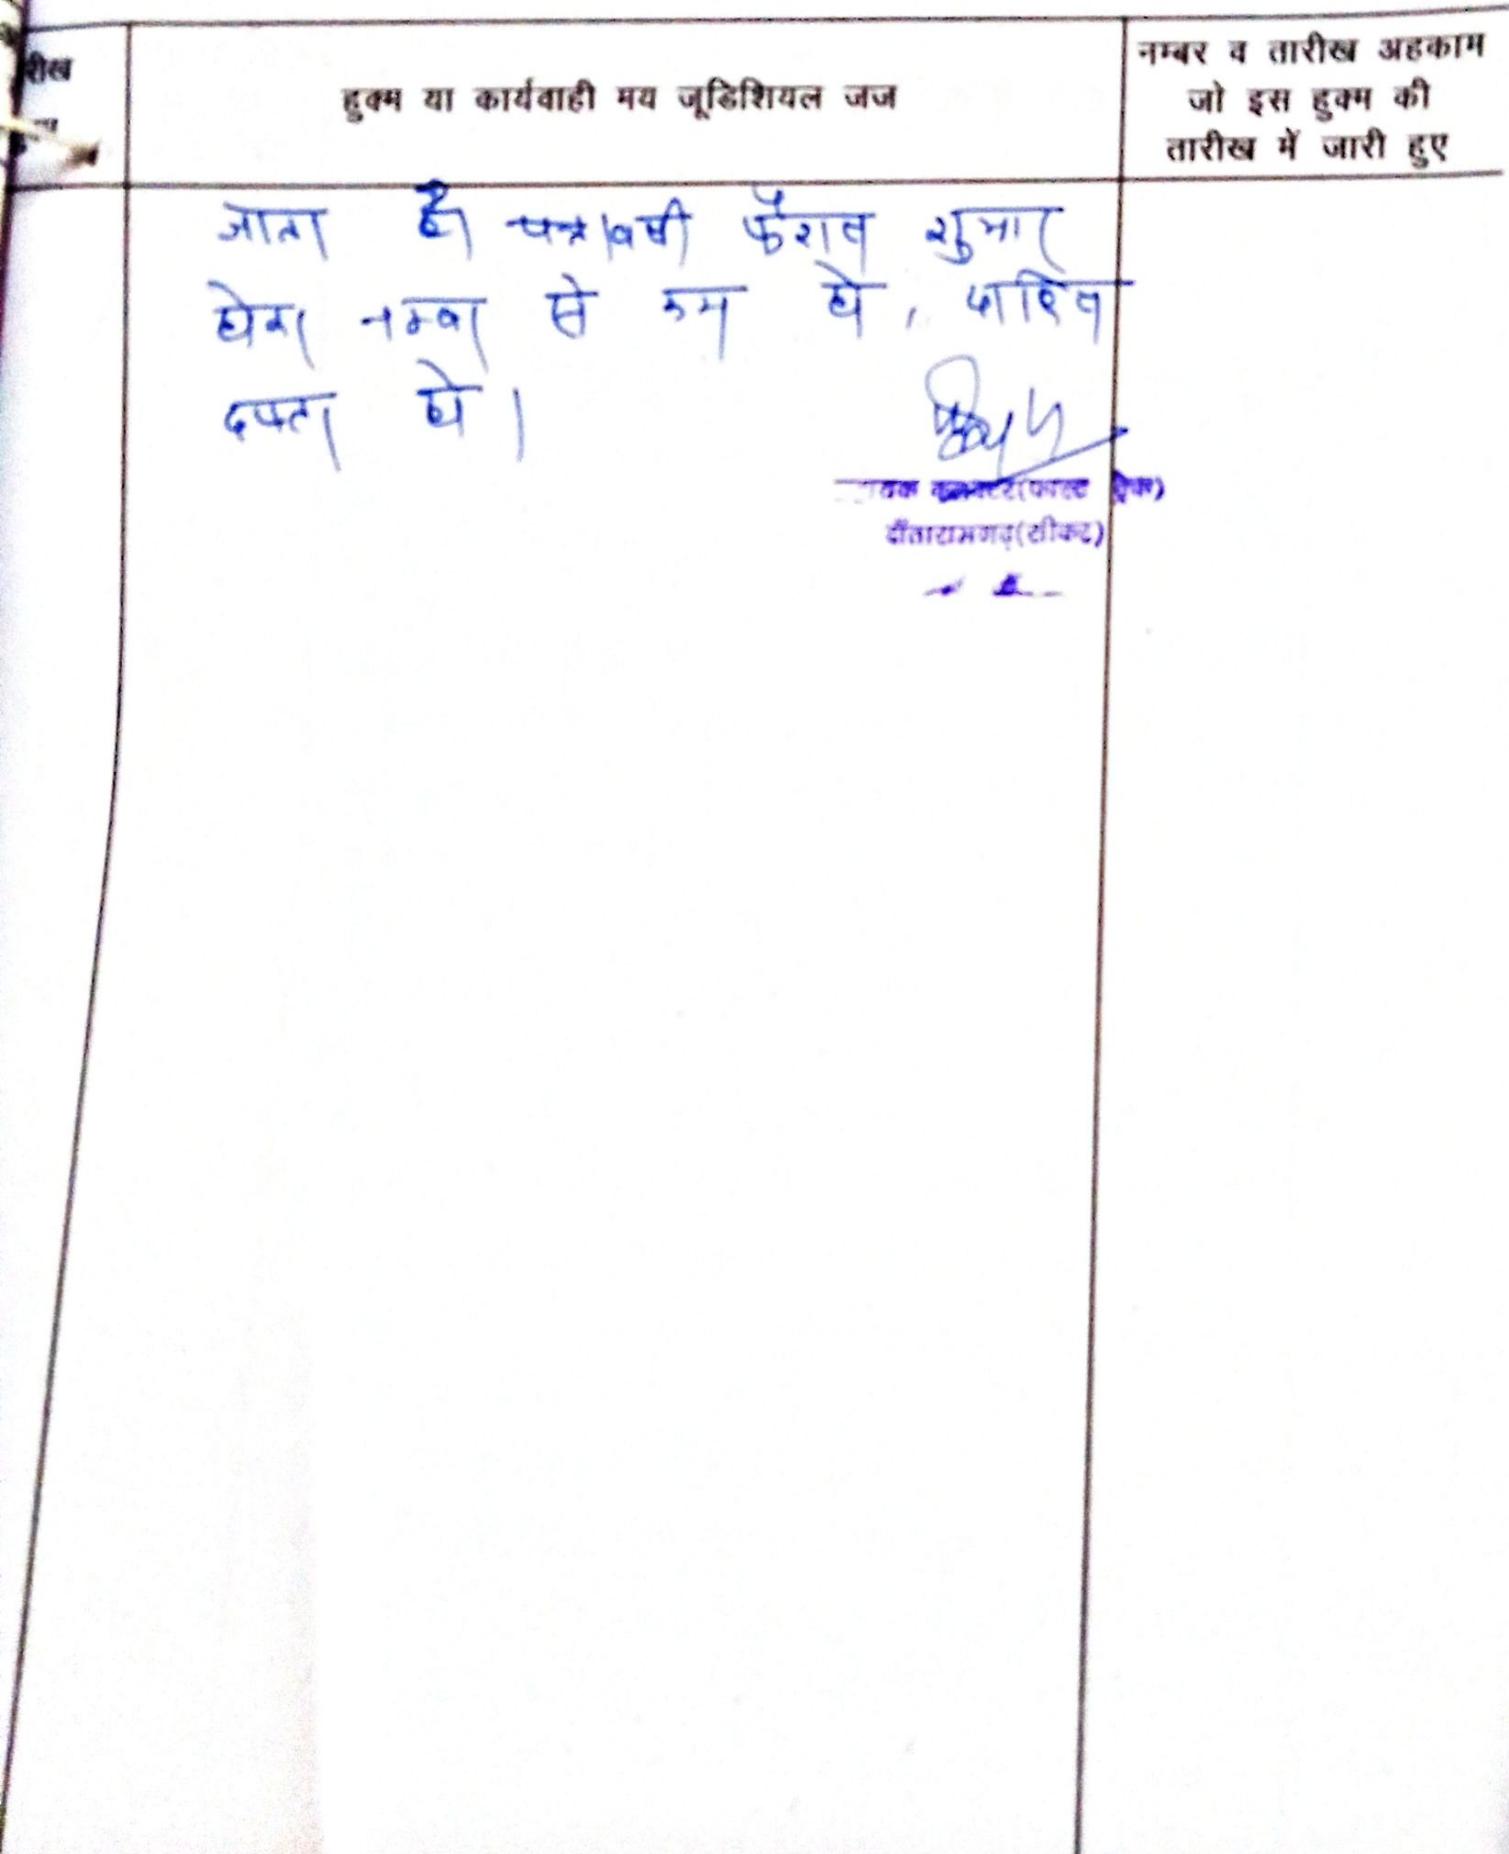 रीख
हुक्म या कार्यवाही मय जूडिशियल जज
नम्बर व तारीख अहकाम
जो इस हुक्म की
तारीख में जारी हुए
जाता है। पत्रावली फैसल शुमार
होकर नम्बर से कम हो, दाखिल
दफ्तर हो।
यक कलक्टर(फास्ट ट्रेक)
दाँतारामगढ़(सीकर)